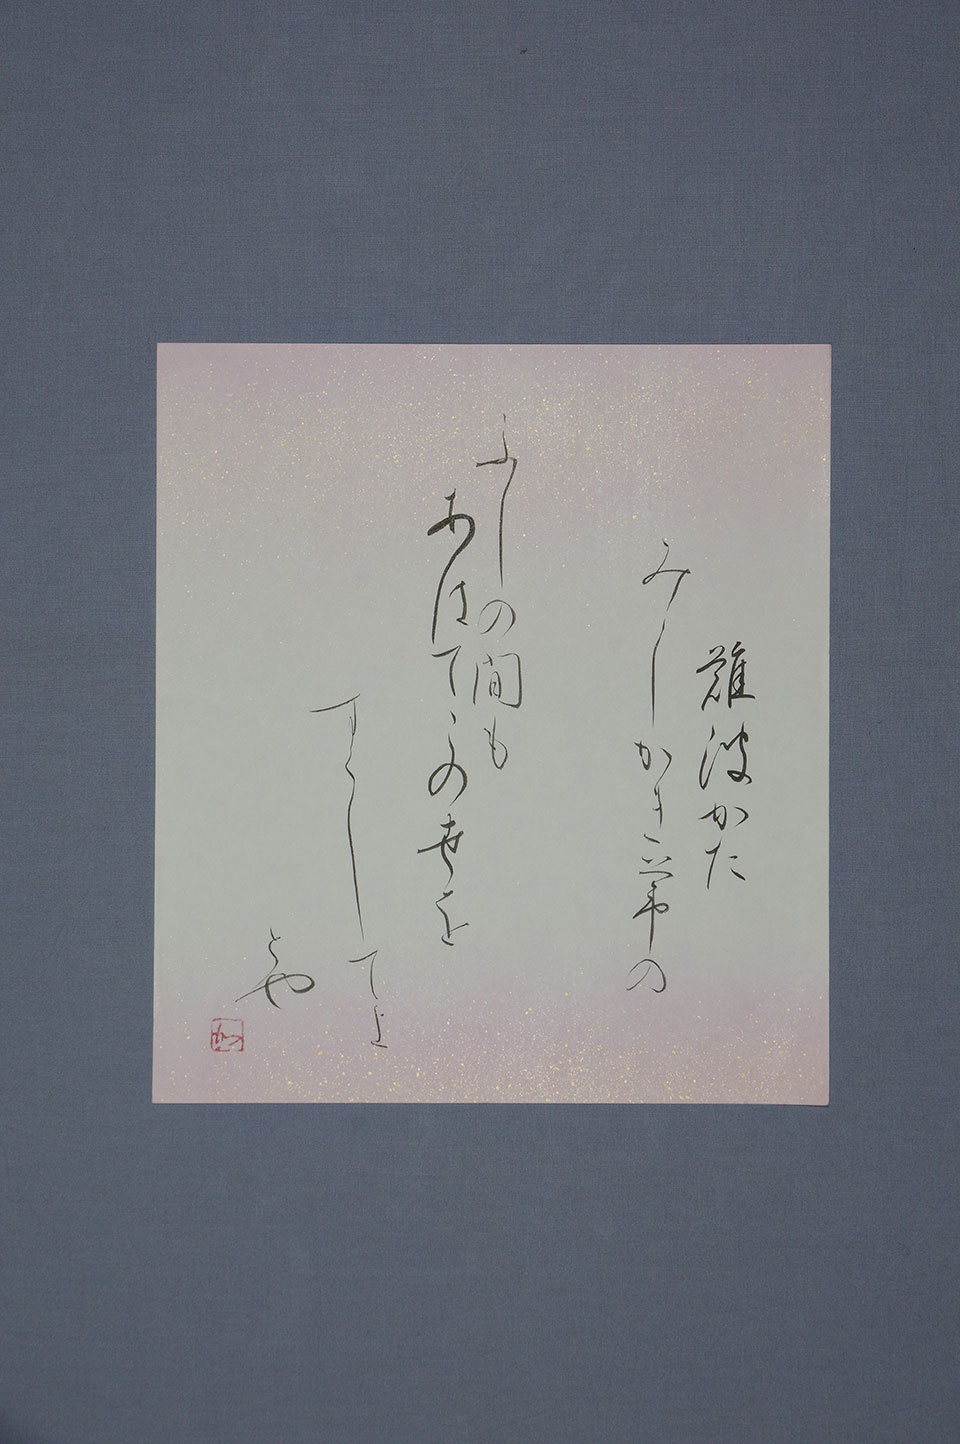 難波かた
みしかき芦の
ふしの間も
あはてこの世を
すくしてよ
とや